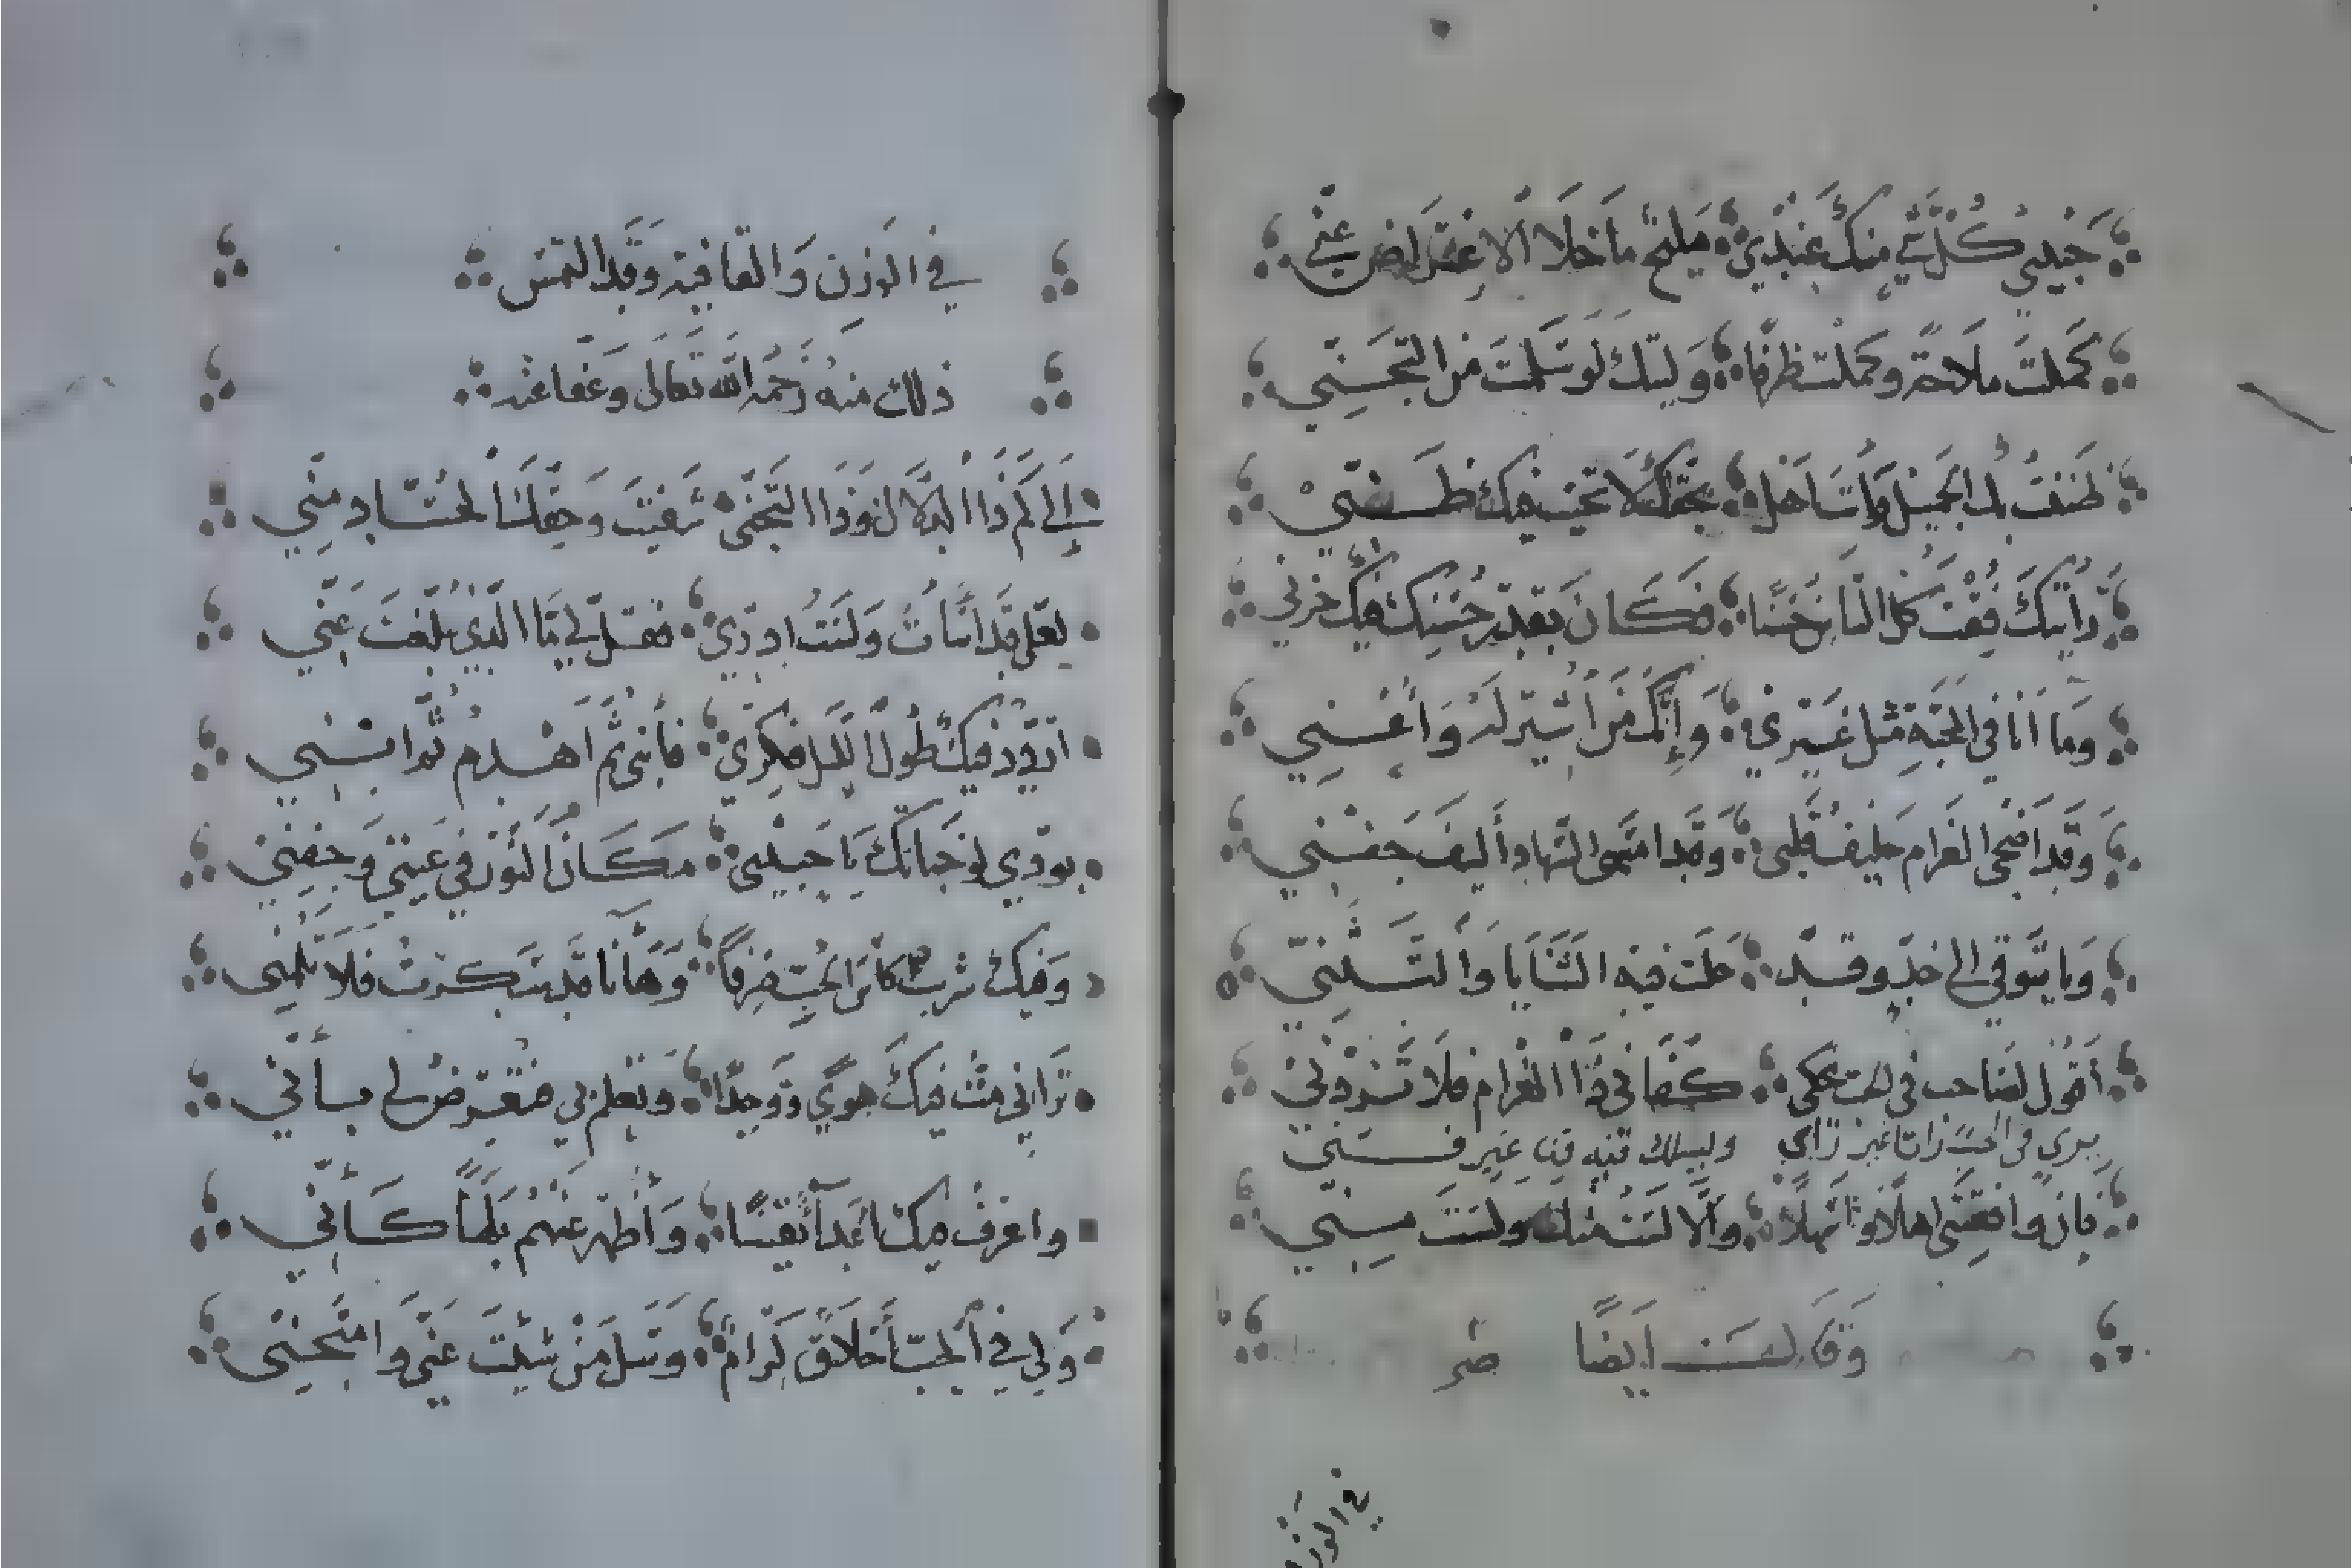 حَبِيبِي كُلُّ شَيْءٍ مِنْكَ عِنْدِي مَلِيحٌ مَا خَلَا الْإِعْرَاضَ عَنِّي
كَمُلْتَ مَلَاحَةً وَكَمُلْتَ ظَرْفًا وَلَيْتَكَ لَوْ سَلِمْتَ مِنَ التَّجَنِّي
ظَنَنْتُ بِكَ الْجَمِيلَ وَأَنْتَ أَهْلٌ بِحَقِّكَ لَا تُخَيِّبْ فِيكَ ظَنِّي
رَأَيْتُكَ فُقْتَ كُلَّ النَّاسِ حُسْنًا فَكَانَ بِقَدْرِ حُسْنِكَ فِيكَ حُزْنِي
وَمَا أَنَا فِي الْمَحَبَّةِ مِثْلَ غَيْرِي وَإِنَّكَ مَنْ أُشِيرُ لَهُ وَأَعْنِي
وَقَدْ أَضْحَى الْغَرَامُ حَلِيفَ قَلْبِي وَقَدْ أَمْسَى السُّهَادُ أَلِيفَ جَفْنِي
وَيَا شَوْقِي إِلَى خَدٍّ وَقَدٍّ حَلَتْ فِيهِ الثَّنَايَا وَالتَّثَنِّي
أَقُولُ لِصَاحِبٍ فِي الْحُبِّ يَحْكِي كَفَانِي ذَا الْغَرَامُ فَلَا تَزِدْنِي
يرى في الحبِّ رَأيًا غير رَأيي ويسلك فيه فنا غير فَنِّي
فَإِنْ وَافَقْتَنِي أَهْلًا وَسَهْلًا وَإِلَّا لَسْتُ مِنْكَ وَلَسْتَ مِنِّي
وَقَالَ أَيْضًا
في الوزن
فِي الْوَزْنِ وَالْقَافِيَةِ وَقَدِ الْتُمِسَ
ذَلِكَ مِنْهُ رَحِمَهُ اللَّهُ تَعَالَى وَعَفَا عَنْهُ
إِلَى كَمْ ذَا الدَّلَالُ وَذَا التَّجَنِّي شَفَيْتَ وَحَقِّكَ الْحُسَّادَ مِنِّي
لَعَلِّي قَدْ أَسَأْتُ وَلَسْتُ أَدْرِي فَقُلْ لِي مَا الَّذِي بُلِّغْتَ عَنِّي
أُرَدِّدُ فِيكَ طُولَ اللَّيْلِ فِكْرِي فَأَبْنِي ثُمَّ أَهْدِمُ ثُمَّ أَبْنِي
بِوُدِّي لَوْ خَبَأْتُكَ يَا حَبِيبِي مَكَانَ النُّورِ فِي عَيْنِي وَجَفْنِي
وَفِيكَ شَرِبْتُ كَأْسَ الْحُبِّ صِرْفًا وَهَا أَنَا قَدْ سَكِرْتُ فَلَا تَلُمْنِي
تَرَانِي مُتُّ فِيكَ هَوًى وَوَجْدًا وَتَعْلَمُ بِي فَتُعْرِضُ لِي بِأَنِّي
وَأَعْرِفُ فِيكَ أَعْدَائِي يَقِينًا وَأُظْهِرُ عَنْهُمُ بَلَهًا كَأَنِّي
وَلِي فِي الْحُبِّ أَخْلَاقٌ كِرَامٌ وَسَلْ مَنْ شِئْتَ عَنِّي وَامْتَحِنِّي